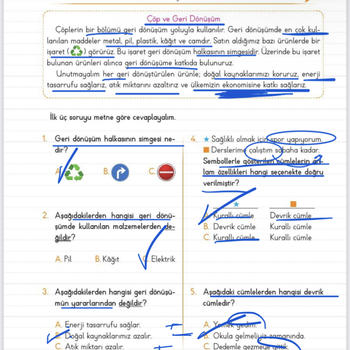 Çöp ve Geri Dönüşüm
Çöplerin bir bölümü geri dönüşüm yoluyla kullanılır. Geri dönüşümde en çok kul-
lanılan maddeler metal, pil, plastik, kâğıt ve camdır. Satın aldığımız bazı ürünlerde bir
işaret ( ) görürüz. Bu işaret geri dönüşüm halkasının simgesidir. Üzerinde bu işaret
bulunan ürünleri alınca geri dönüşüme katkıda bulunuruz.
Unutmayalım her geri dönüştürülen ürünle; doğal kaynaklarımızı korur, enerji
tasarrufu sağlarız, atık miktarını azaltırız ve ülkemizin ekonomisine katkı sağlarız.
İlk üç soruyu metne göre cevaplayalım.
1. Geri dönüşüm halkasının simgesi ne-
dir?
A. B. C.
2. Aşağıdakilerden hangisi geri dönü-
şümde kullanılan malzemelerden de-
ğildir?
A. Pil B. Kâğıt C. Elektrik
3. Aşağıdakilerden hangisi geri dönüşü-
mün yararlarından değildir?
A. Enerji tasarrufu sağlar.
B. Doğal kaynaklarımız azalır.
C. Atık miktarı azalır.
4. ★ Sağlıklı olmak için spor yapıyorum.
■ Derslerime çalıştım sabaha kadar.
Sembollerle gösterilen cümlelerin an-
lam özellikleri hangi seçenekte doğru
verilmiştir?
★ ■
A. Kurallı cümle Devrik cümle
B. Devrik cümle Kurallı cümle
C. Kurallı cümle Kurallı cümle
5. Aşağıdaki cümlelerden hangisi devrik
cümledir?
A. Yemek yedim.
B. Okula gelmeliyiz zamanında.
C. Dedemle gezmeye gittik.